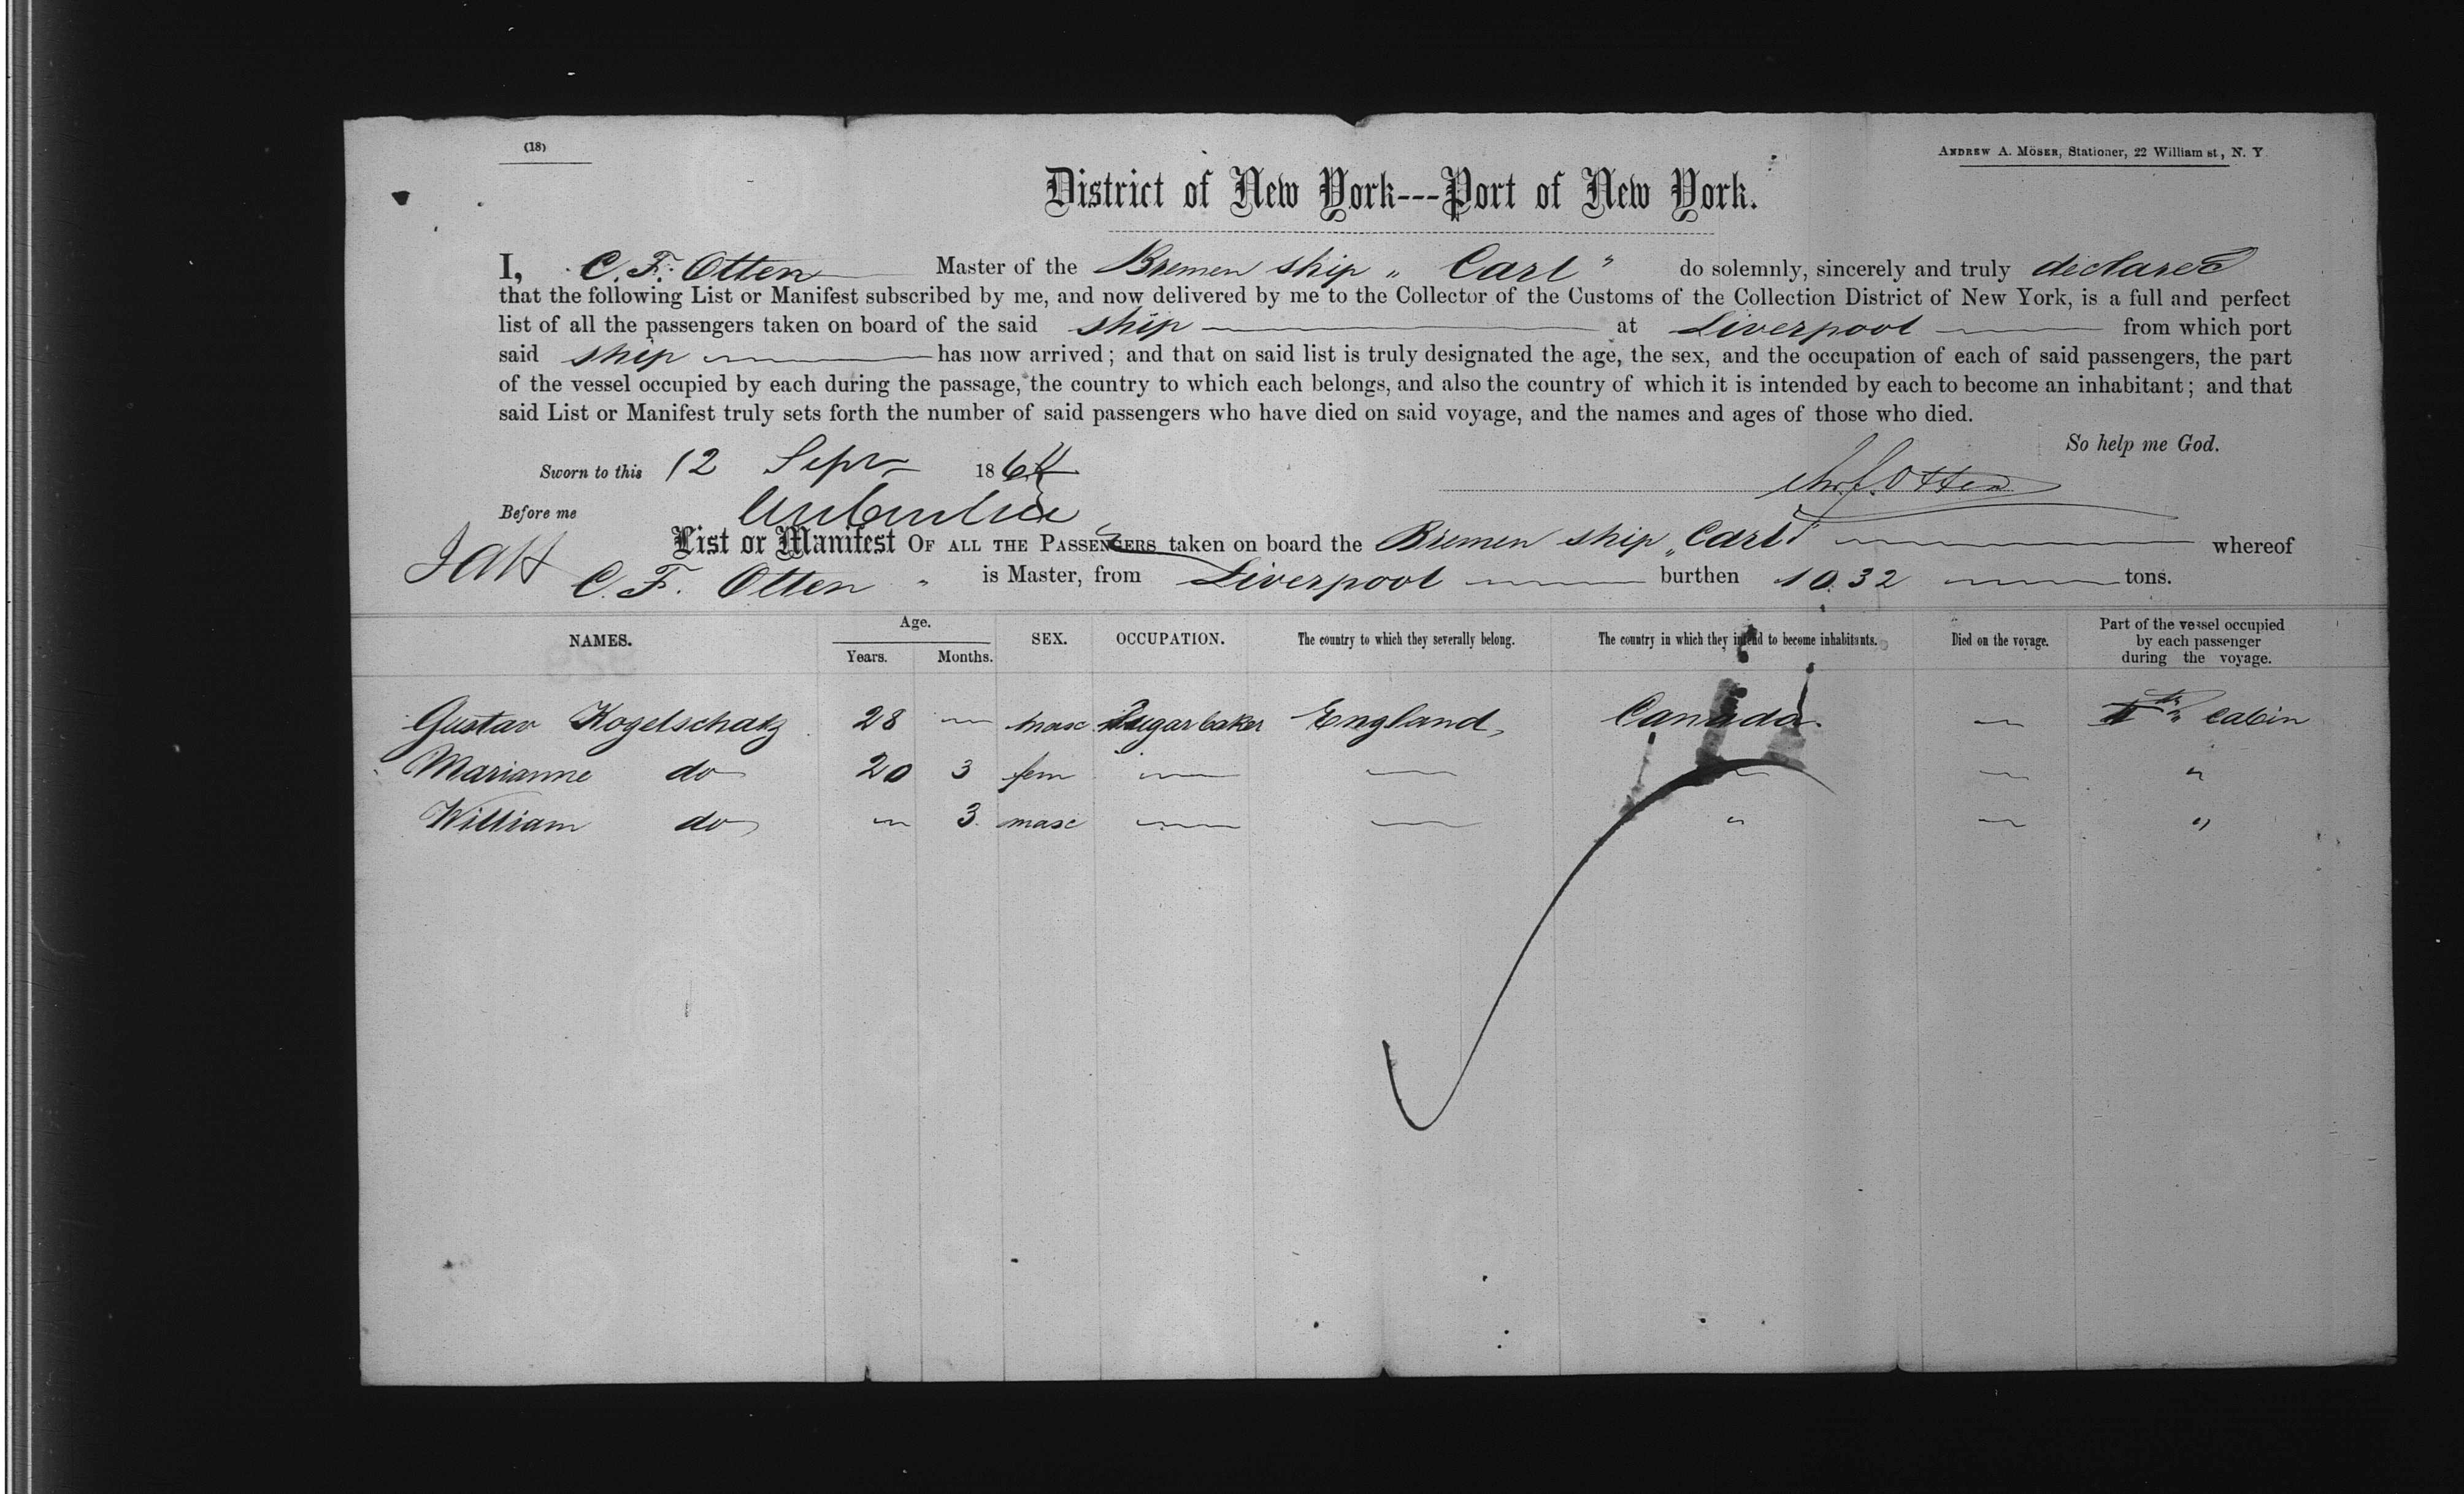 (18)
ANDREW A. MÖSER, Stationer, 22 William st., N. Y.
District of New York---Port of New York.
I, C. F. Otten Master of the Bremen ship „ Carl " do solemnly, sincerely and truly declare
that the following List or Manifest subscribed by me, and now delivered by me to the Collector of the Customs of the Collection District of New York, is a full and perfect
list of all the passengers taken on board of the said ship at Liverpool from which port
said ship has now arrived; and that on said list is truly designated the age, the sex, and the occupation of each of said passengers, the part
of the vessel occupied by each during the passage, the country to which each belongs, and also the country of which it is intended by each to become an inhabitant; and that
said List or Manifest truly sets forth the number of said passengers who have died on said voyage, and the names and ages of those who died.
So help me God.
Sworn to this 12 Sepr 1864
Otten
Before me
List or Manifest OF ALL THE PASSENGERS taken on board the Bremen ship „Carl" whereof
C. F. Otten " is Master, from Liverpool burthen 1032 tons.
NAMES. Age. Years. Months. SEX. OCCUPATION. The country to which they severally belong. The country in which they intend to become inhabitants. Died on the voyage. Part of the vessel occupied by each passenger during the voyage.
Gustav Kogelschatz 28 — masc Sugarbaker England, Canada. — cabin
Marianne do 20 3 fem — — — — "
William do — 3 masc — — " — "